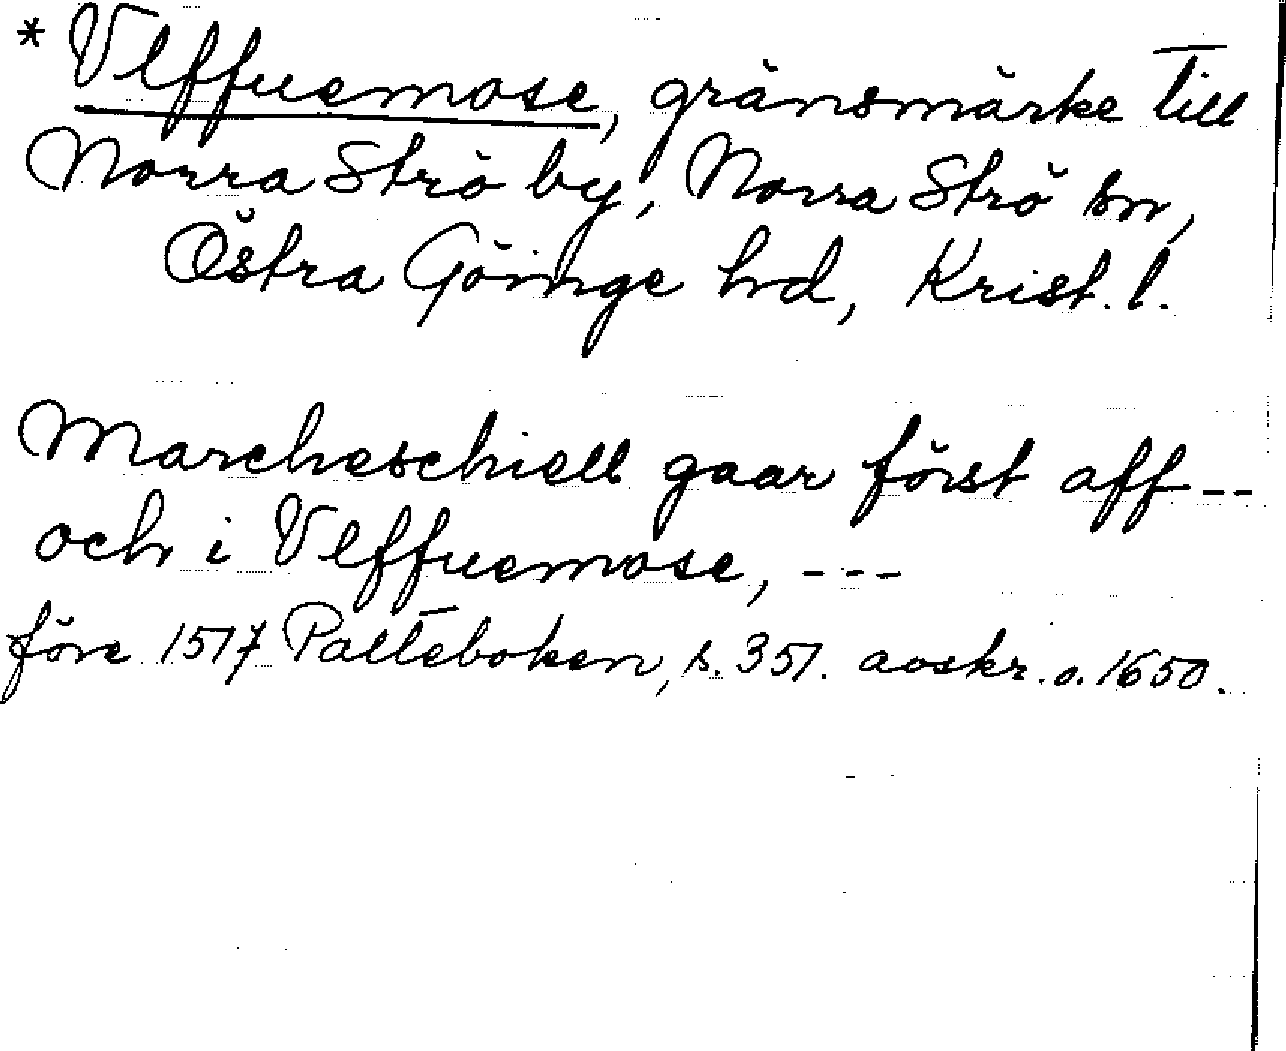 * Vlffuemose, gränsmärke till
Norra Strö by, Norra Strö sn,
Östra Göinge hd, Krist. l.
Marcheschiell gaar först aff --
och i Vlffuemose, ---
före 1517 Palteboken, s. 351. avskr. o. 1650.